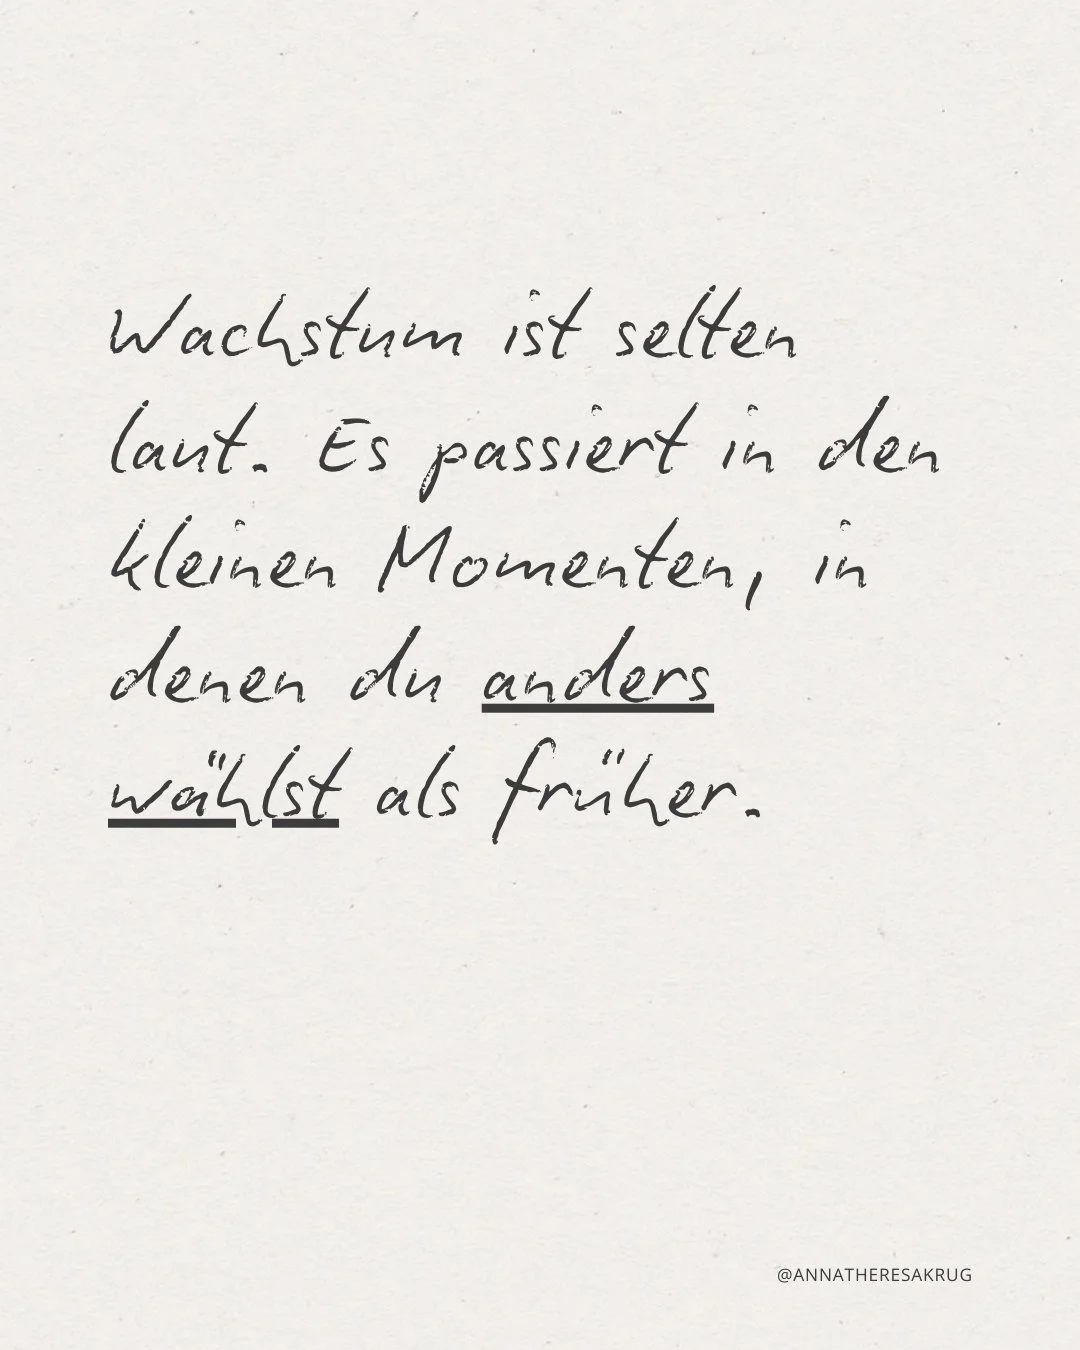 Wachstum ist selten
laut. Es passiert in den
kleinen Momenten, in
denen du anders
wählst als früher.
@ANNATHERESAKRUG